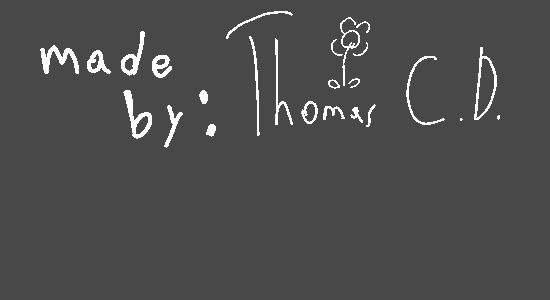 made
by: Thomas C.D.